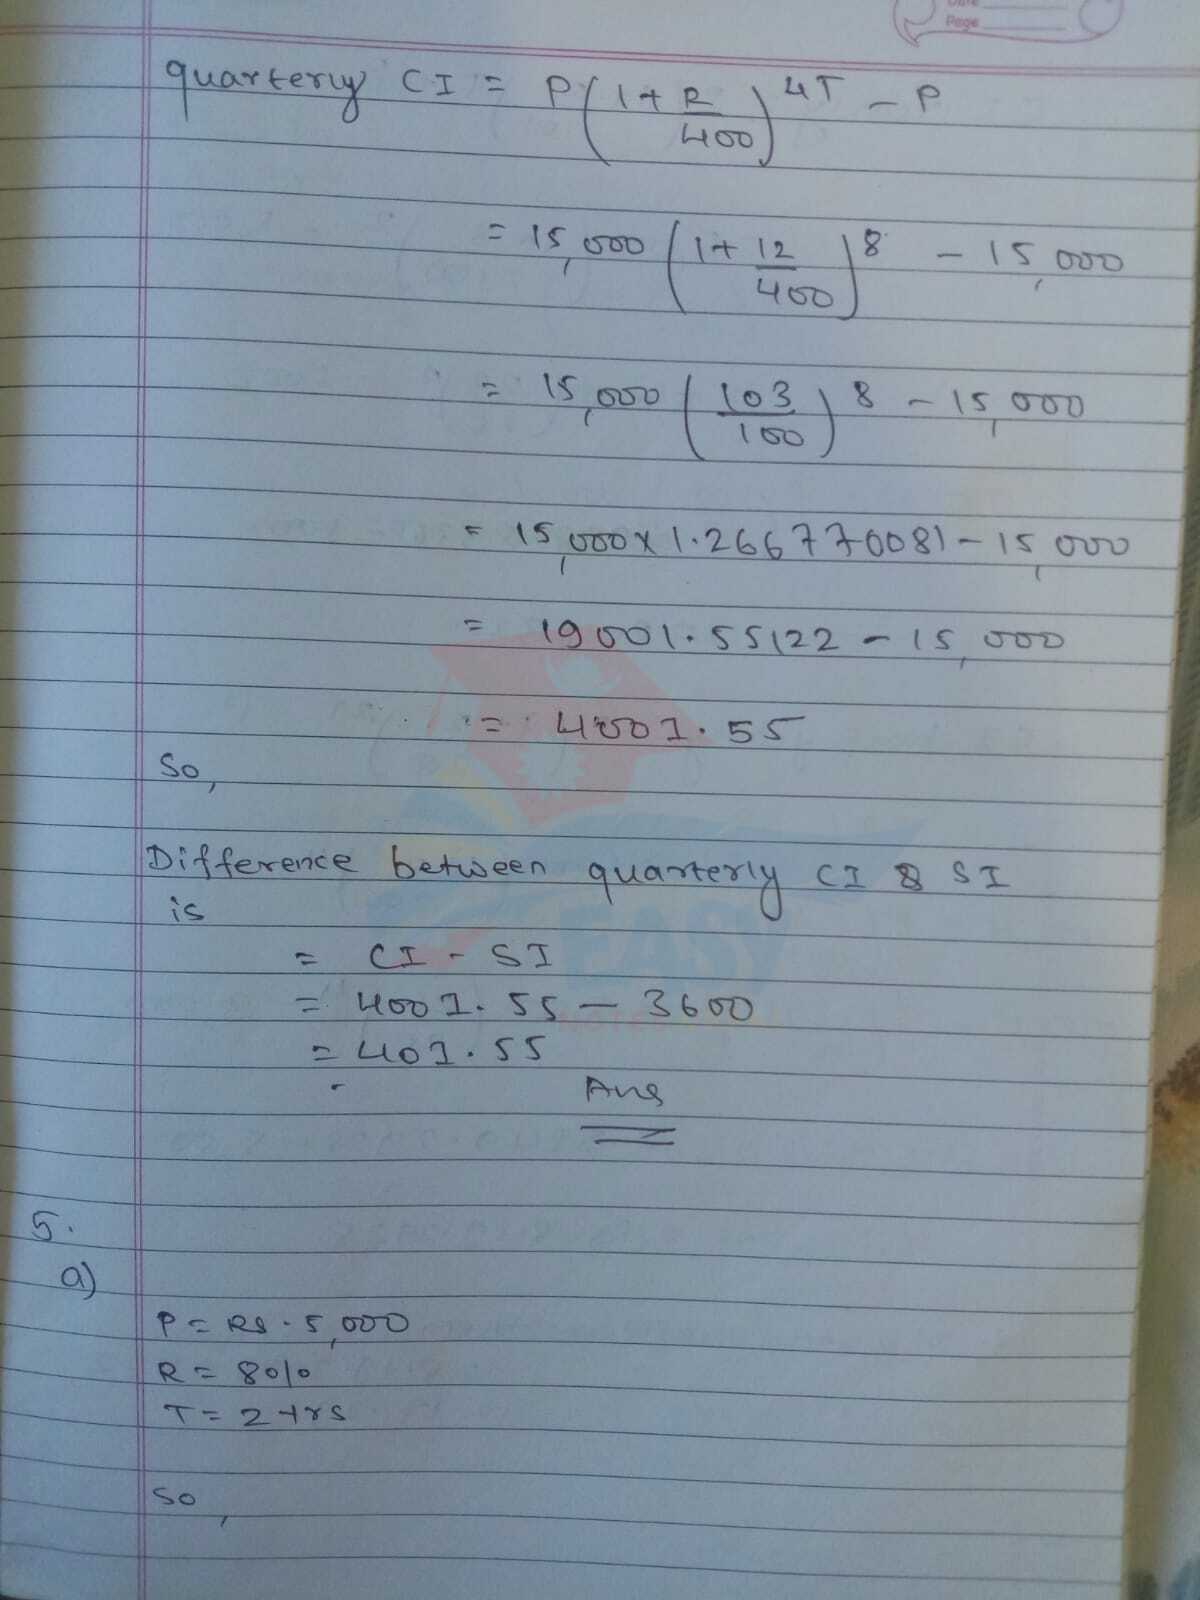 Date
Page
quarterly CI = P(1+R/400)^4T - P
= 15,000 (1+12/400)^8 - 15,000
= 15,000 (103/100)^8 - 15,000
= 15,000 x 1.266770081 - 15,000
= 19001.55122 - 15,000
= 4001.55
So,
Difference between quarterly CI & SI
is
= CI - SI
= 4001.55 - 3600
= 401.55
Ans
5.
a)
P = RS. 5,000
R = 8%
T = 2 yrs
So,
EASY